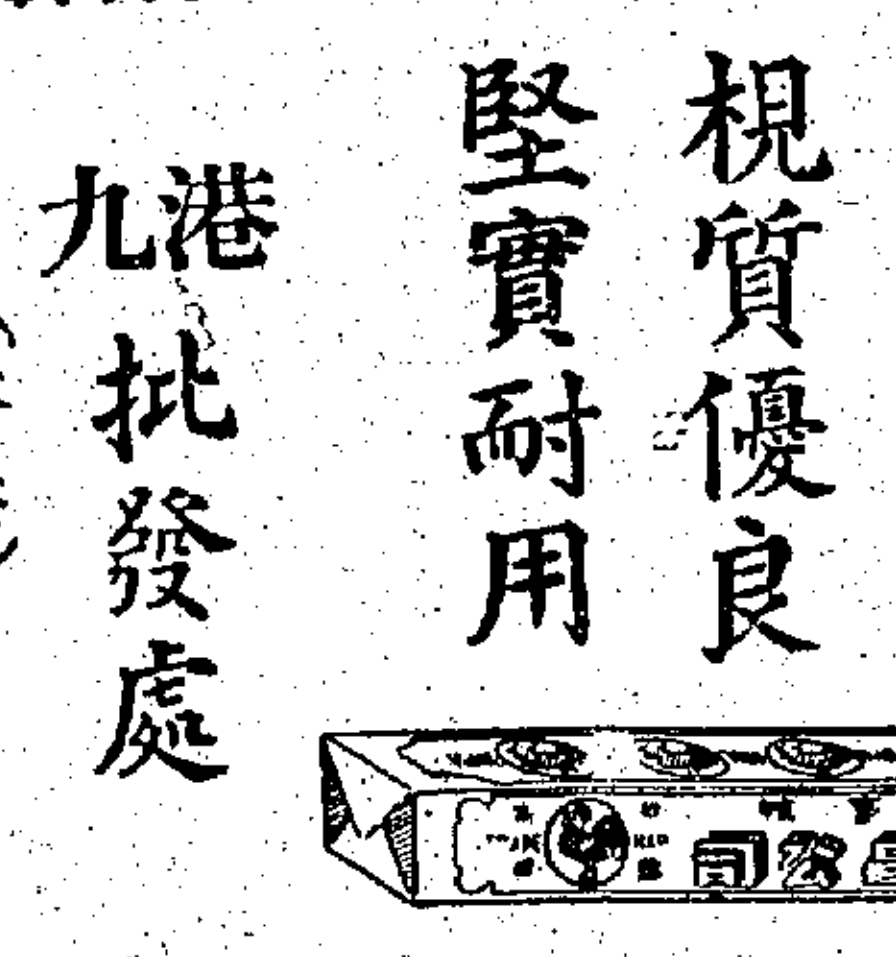 梘質優良
堅實耐用
港九批發處